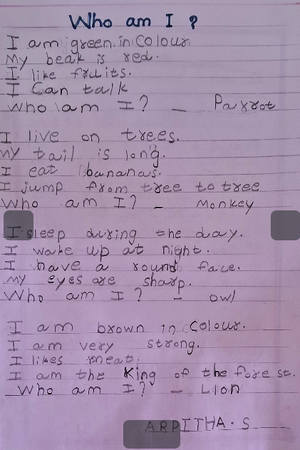 Who am I ?
I am green in Colour
My beak is red.
I like fruits.
I Can talk
Who am I? - Parrot
I live on trees.
My tail is long.
I eat bananas.
I jump from tree to tree
Who am I? - Monkey
I sleep during the day.
I wake up at night.
I have a round face.
My eyes are sharp.
Who am I? - owl
I am brown in Colour.
I am very strong.
I likes meat.
I am the King of the forest.
Who am I? - Lion
ARPITHA.S